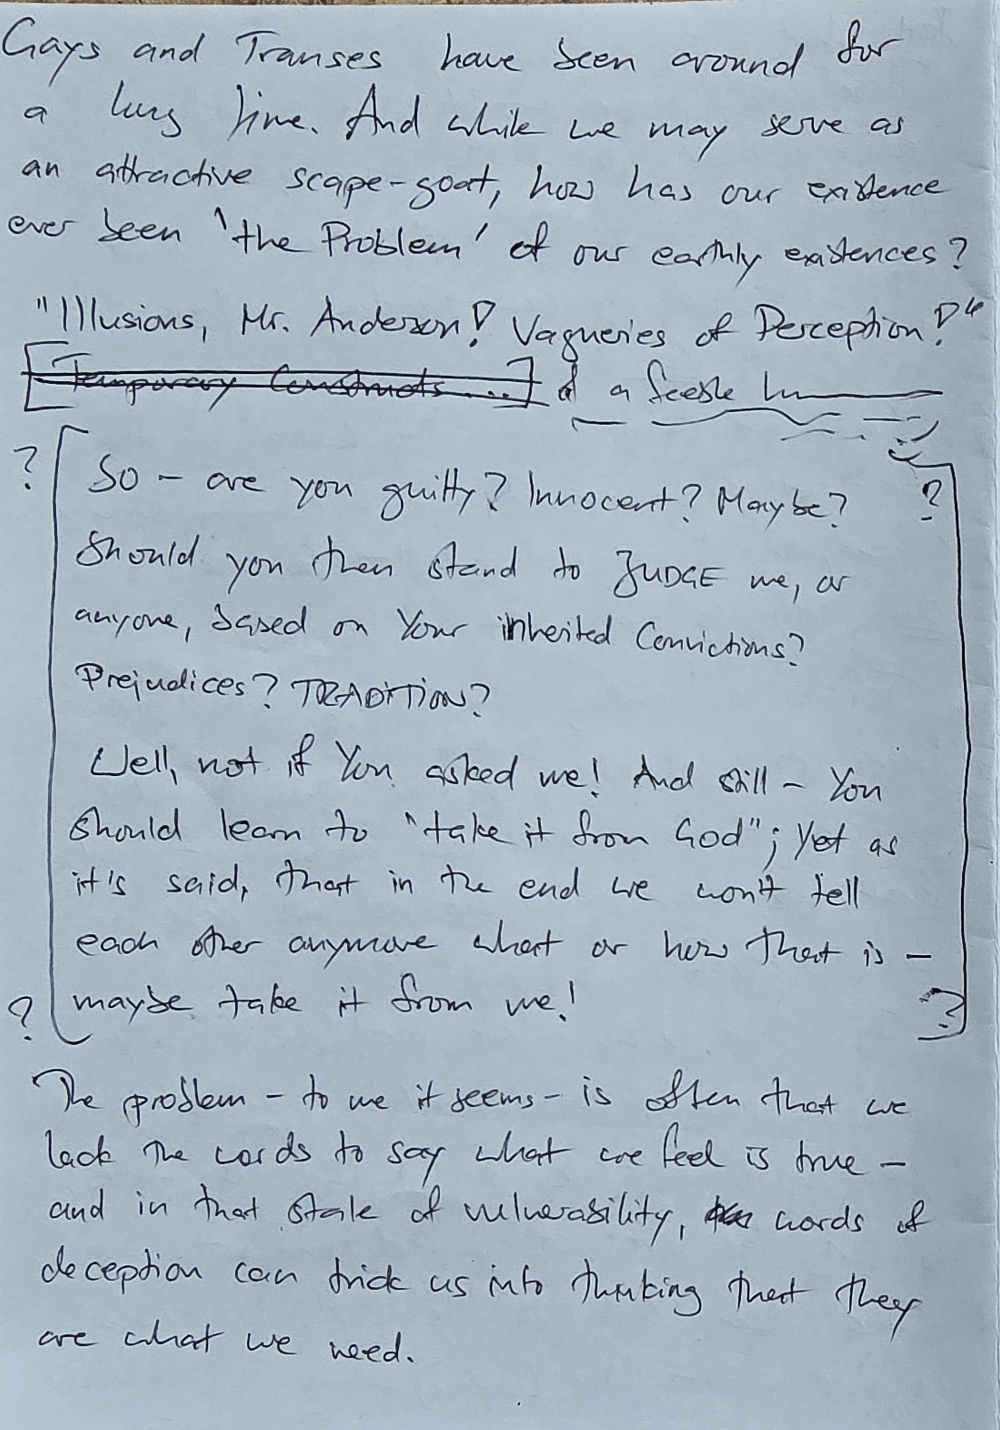 Gays and Transes have been around for
a long time. And while we may serve as
an attractive scape-goat, how has our existence
ever been 'the Problem' of our earthly existences?
"Illusions, Mr. Anderson! Vagueries of Perception!"
[Temporary Constructs...] of a feeble
? So – are you guilty? Innocent? Maybe? ?
Should you then stand to JUDGE me, or
anyone, based on Your inherited Convictions?
Prejudices? TRADITION?
Well, not if You asked me! And still – You
should learn to "take it from God"; yet as
it's said, that in the end we won't tell
each other anymore what or how that is –
? maybe take it from me! ?
The problem – to me it seems – is often that we
lack the words to say what we feel is true –
and in that state of vulnerability, words of
deception can trick us into thinking that they
are what we need.